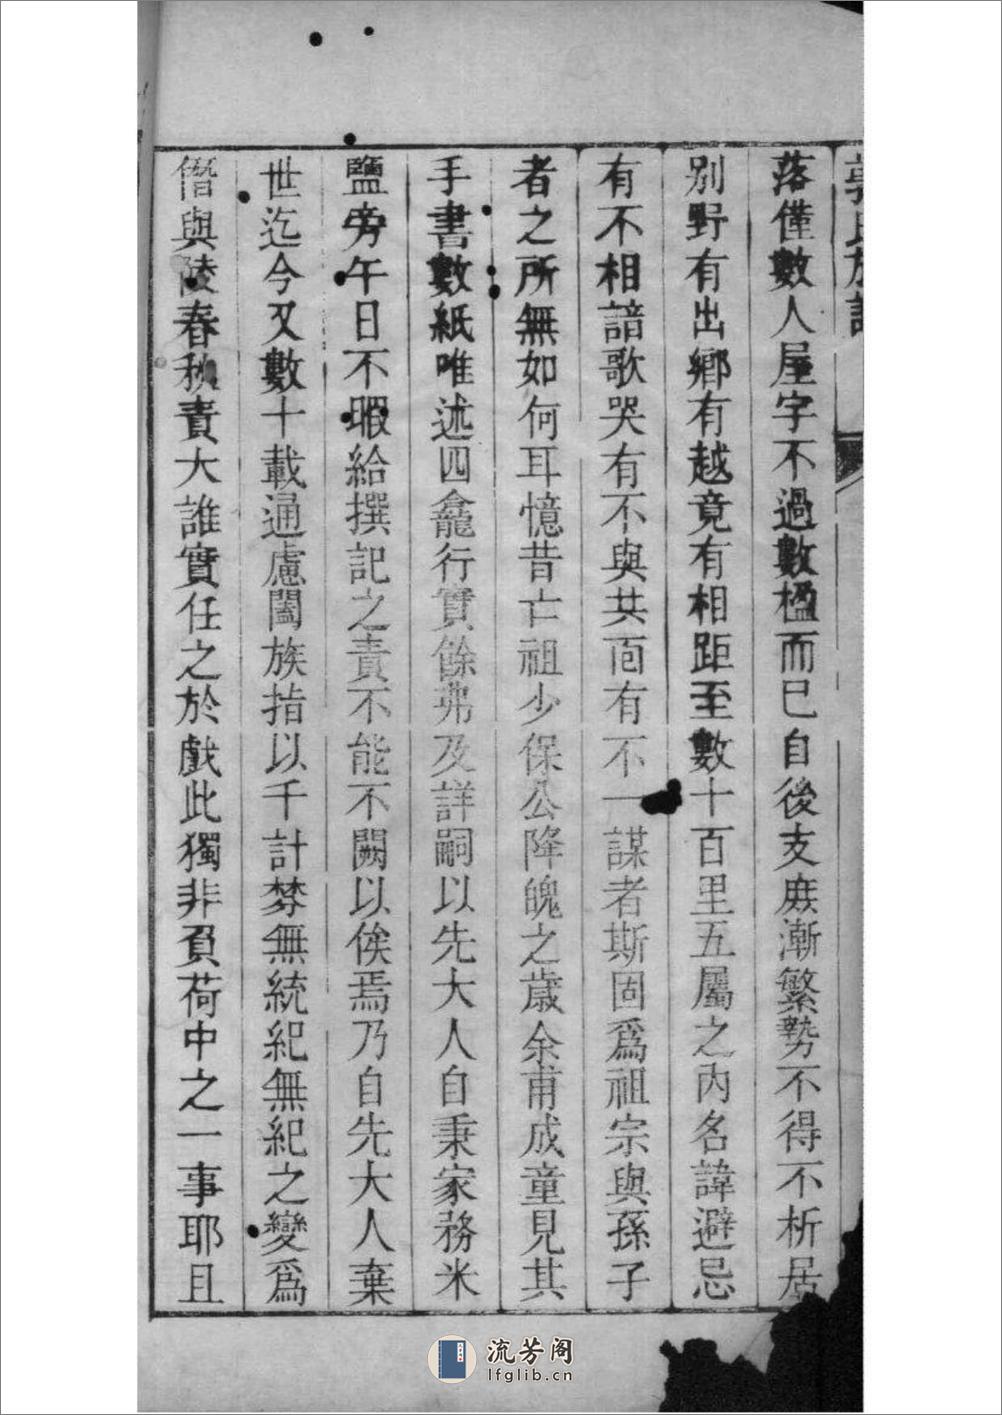 郭氏族譜
落僅數人屋宇不過數楹而已自後支庶漸繁勢不得不析居
別野有出鄉有越竟有相距至數十百里五屬之內名諱避忌
有不相諳歌哭有不與共而有不一謀者斯固爲祖宗與孫子
者之所無如何耳憶昔亡祖少保公降魄之歲余甫成童見其
手書數紙唯述四龕行實餘弗及詳嗣以先大人自秉家務米
鹽旁午日不暇給撰記之責不能不闕以俟焉乃自先大人棄
世迄今又數十載通慮闔族指以千計棼無統紀無紀之變爲
僭與陵春秋責大誰實任之於戲此獨非負荷中之一事耶且
流芳阁
lfglib.cn